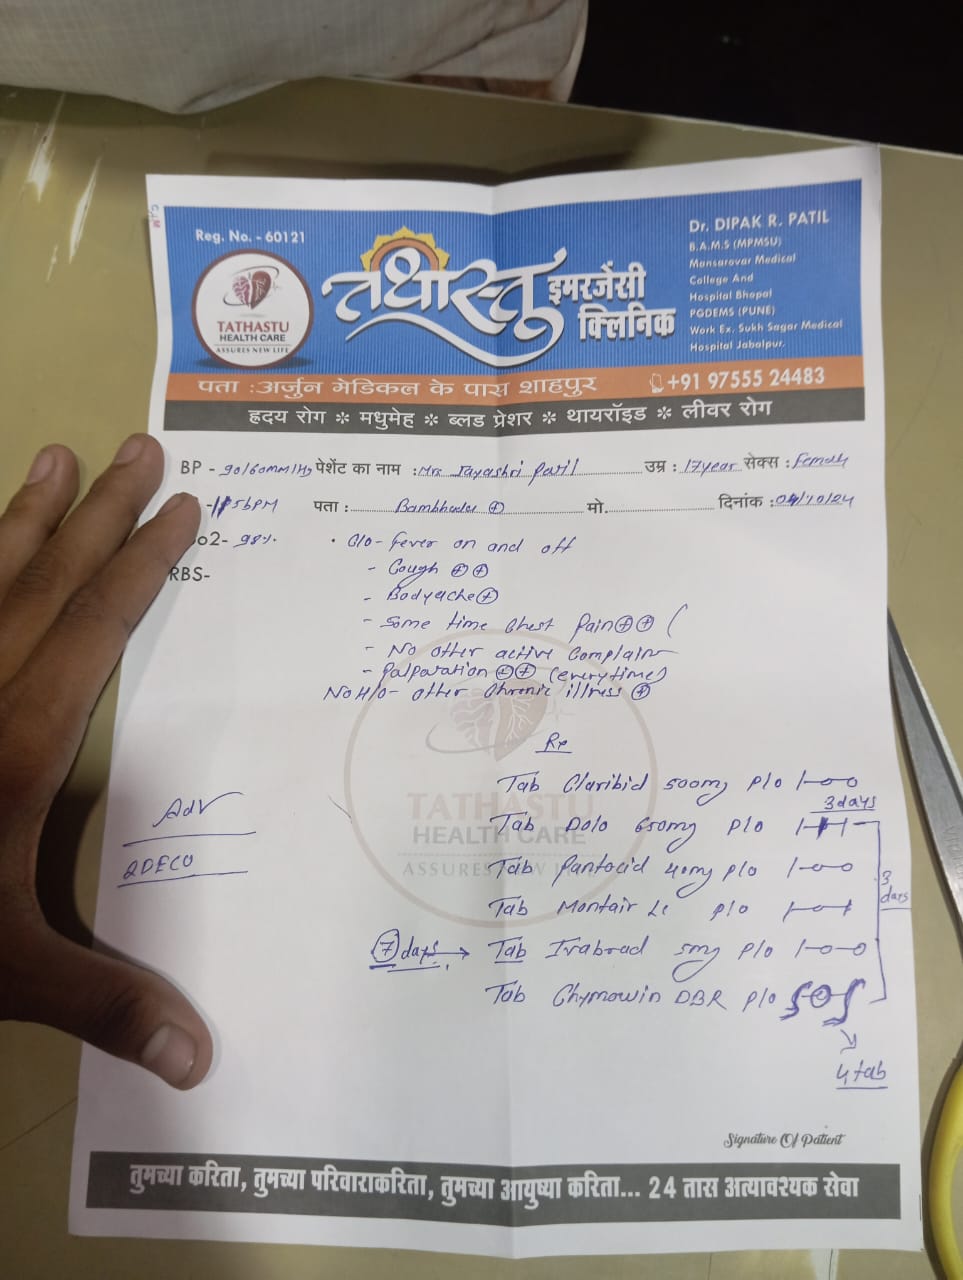 Reg. No. - 60121
TATHASTU
HEALTH CARE
ASSURES NEW LIFE
तथास्तु इमरजेंसी क्लिनिक
Dr. DIPAK R. PATIL
B.A.M.S (MPMSU)
Mansarovar Medical
College And
Hospital Bhopal
PGDEMS (PUNE)
Work Ex. Sukh Sagar Medical
Hospital Jabalpur.
पता :अर्जुन मेडिकल के पास शाहपुर +91 97555 24483
ह्रदय रोग * मधुमेह * ब्लड प्रेशर * थायरॉइड * लीवर रोग
BP - 90/60mm/Hg पेशेंट का नाम : Mrs Jayashri Patil उम्र : 17year सेक्स : Female
पता : मो. दिनांक : 04/10/24
o2- 98%
RBS-
C/o- fever on and off
- Cough ⊕⊕
- Bodyache ⊕
- Some time Chest Pain ⊕⊕ (
- No other active Complain
- Palparation ⊕⊕ (everytime)
No H/o- other Chronic illness ⊕
Rx
Tab Claribid 500mg P/o 1-0-0
3days
Tab Dolo 650mg P/o
Tab Pantocid 40mg P/o 1-0-0
Tab Montair Lc P/o 1-0-1
3 days
7 days → Tab Ivabrad 5mg P/o 1-0-0
Tab Chymowin DBR P/o SOS
4 tab
Adv
2DECO
TATHASTU
HEALTH CARE
ASSURES NEW LIFE
Signature Of Patient
तुमच्या करिता, तुमच्या परिवाराकरिता, तुमच्या आयुष्या करिता... 24 तास अत्यावश्यक सेवा